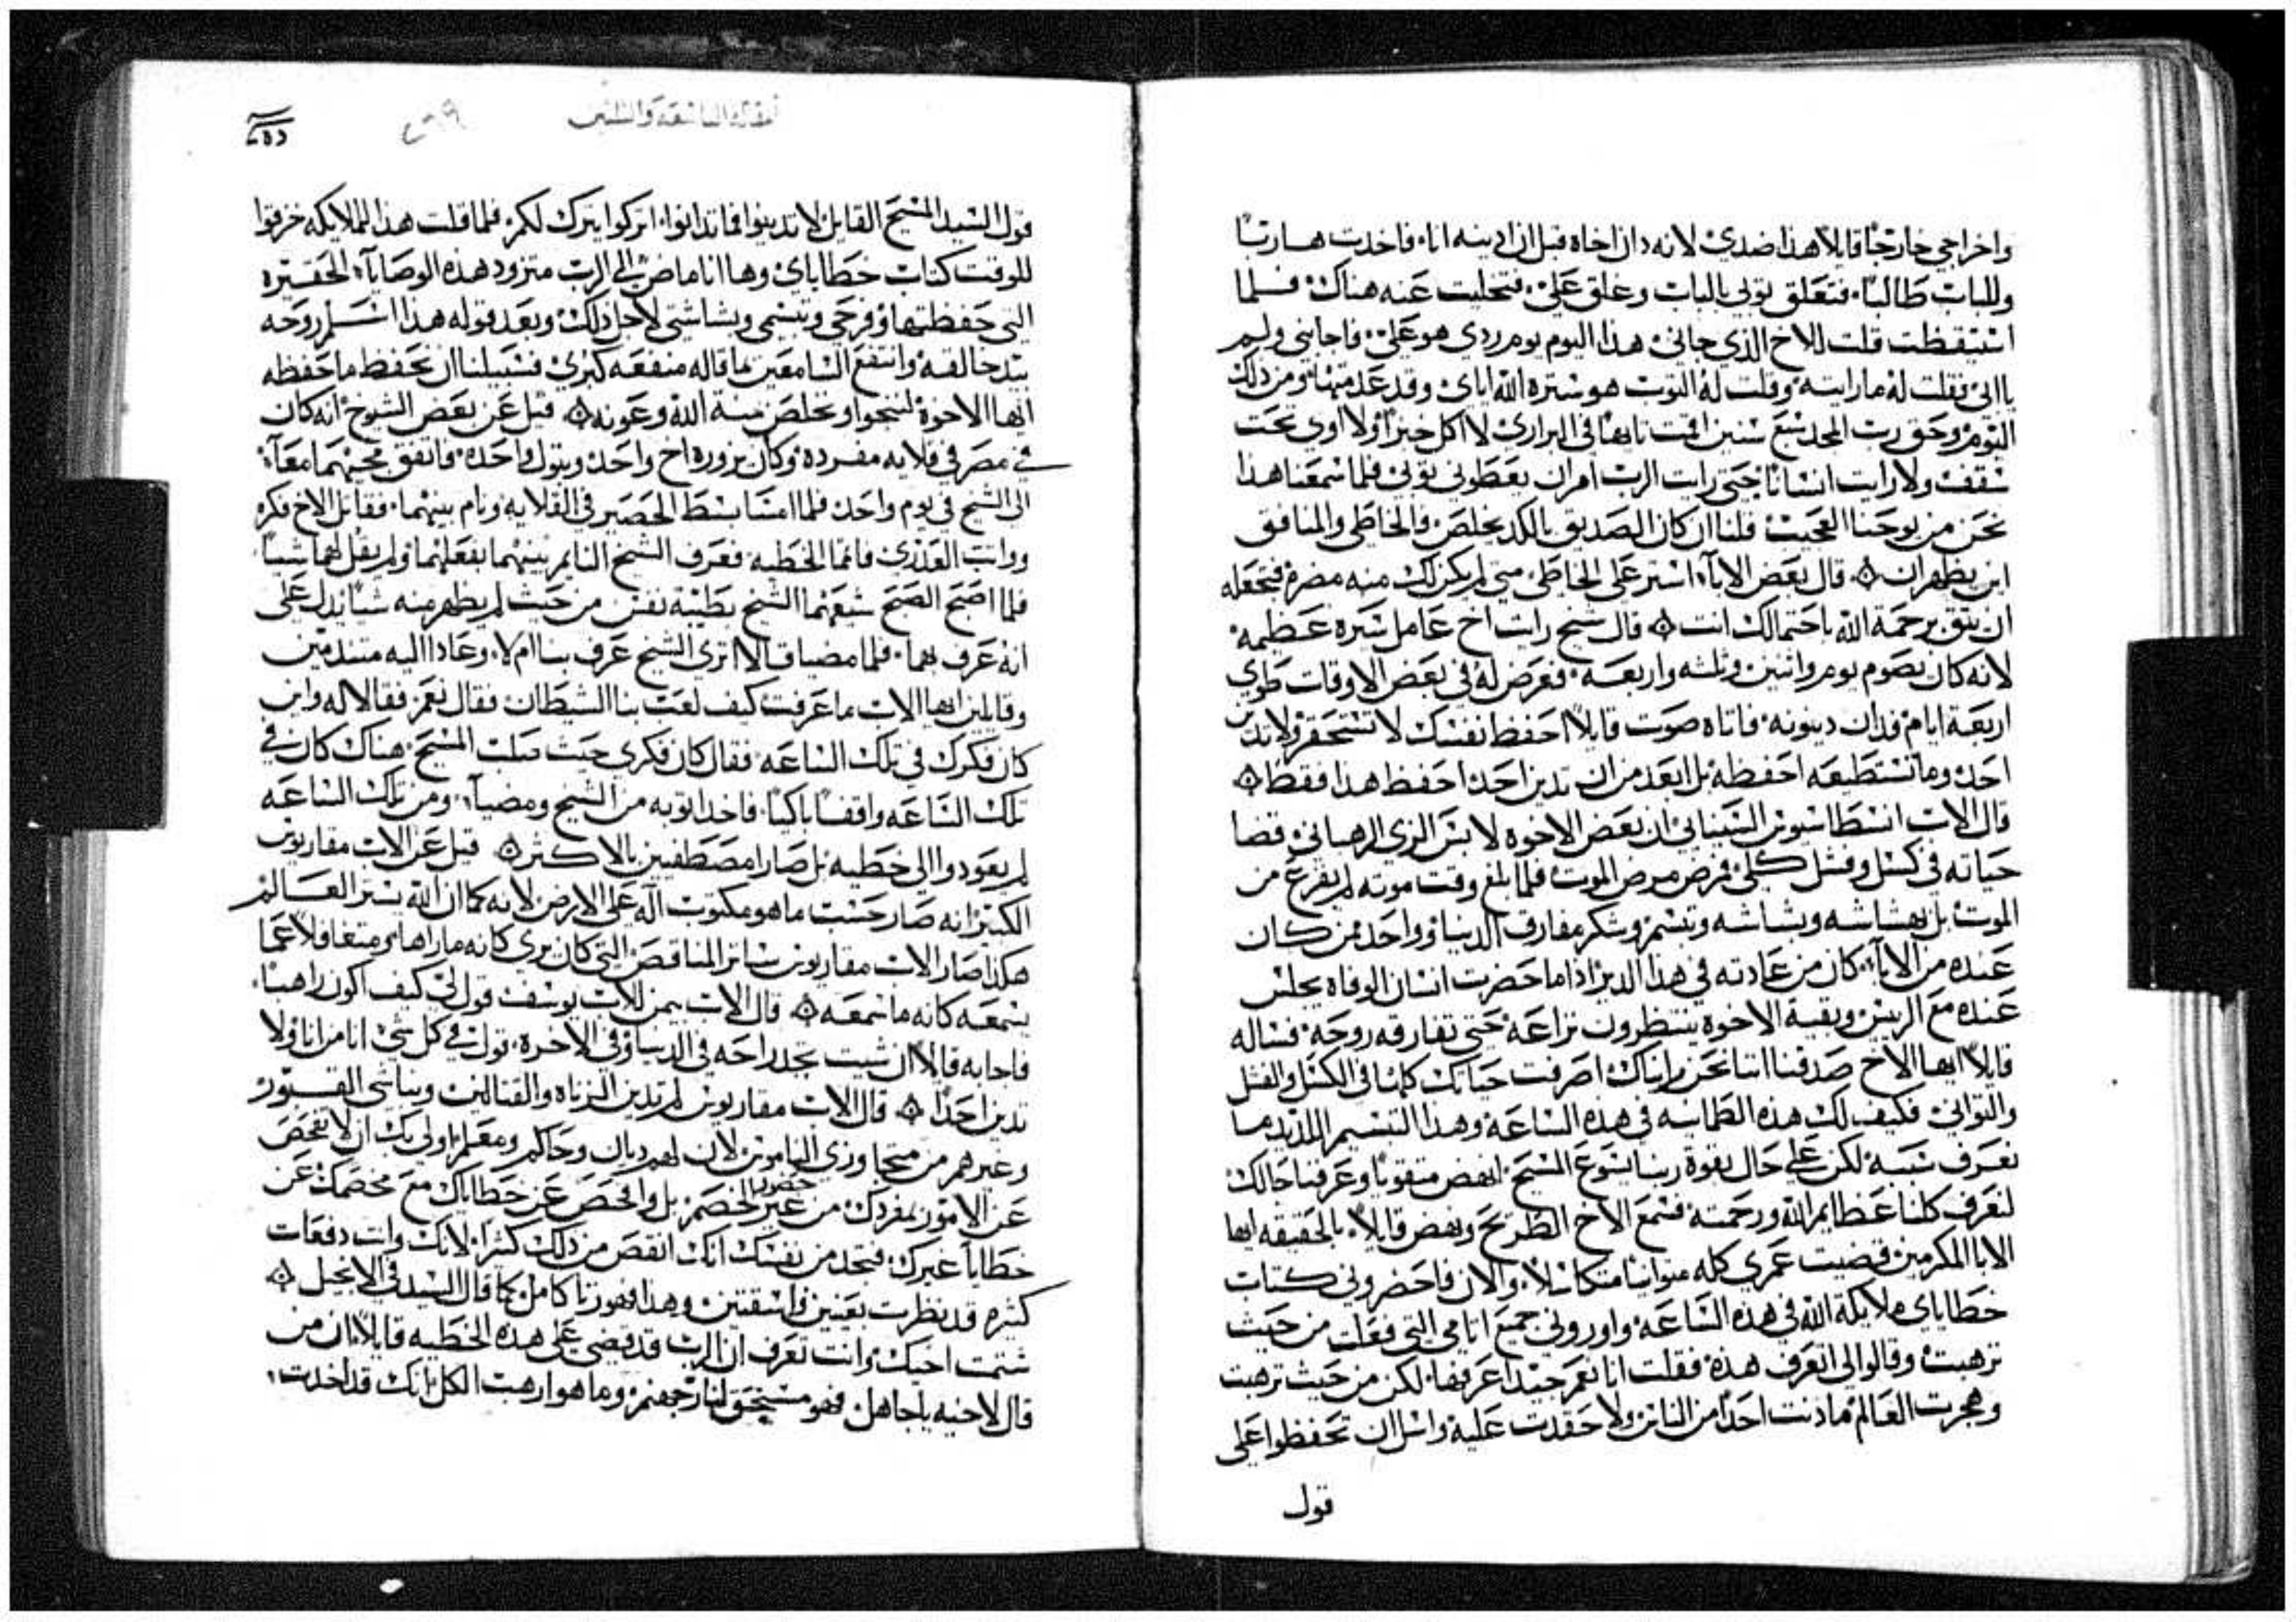 واخراجي خارجًا قايلًا هذا ضدي لانه دان اخاه قبل ان ادينه انا. فاخدت هاربًا
وللباب طالبًا. فتعلق توبي بالباب وغلق علي. فتخليت عنه هناك. فلما
استيقظت قلت للاخ الذي جاني هذا اليوم يوم ردي هو علي. فاجابني ولم
ياابي فقلت له مارايته. وقلت له التوب هو ستره الله اياي وقد عدمتها. ومن ذلك
اليوم وحق رب المجد سبع سنين اقمت تايهًا في البراري لا اكل خبزًا ولا اوي تحت
سقف ولا رايت انسانًا حتى رايت الرب امر ان يعطوني توبي فلما سمعنا هذا
نحن من يوحنا العجيب. قلنا ان كان الصديق بالكد يخلص فالخاطي والمنافق
اين يظهران ۞ قال بعض الابآء استر على الخاطي متى لم يكن لك منه مضره فتجعله
ان يثق برحمة الله باحتمالك انت ۞ قال شيخ رايت اخ عامل سيره عظيمه
لانه كان يصوم يوم واثنين وثلثه واربعه. فعرض له في بعض الاوقات طوي
اربعة ايام فدان دينونه. فاتاه صوت قايلًا احفظ نفسك لا تستحقر ولا تدين
احد وما تستطيعه احفظه بل ابعد من ان تدين احدا احفظ هذا فقط ۞
قال الاب انسطاسيوس السينايي ان بعض الاخوه لابس الزي الرهباني. قضا
حياته في كسل وفشل كلي. فمرض مرض الموت فلما بلغ وقت موته لم يفزع من
الموت بل بهشاشه وبشاشه وتبسم وشكر مفارق الدنيا. وواحد ممن كان
عنده من الابآء. كان من عادته في هذا الدير اذا ما حضرت انسان الوفاه يجلس
عنده مع الريس وبقية الاخوه ينتظرون نزاعه حتى تفارقه روحه. فساله
قايلًا ايها الاخ صدقنا اننا نحن رايناك اصرفت حياتك كلها في الكسل والفشل
والتواني. فكيف لك هذه الطمانينه في هذه الساعه وهذا التبسم اللذيذ ما
نعرف سببه لكن على حال بقوة ربنا يسوع المسيح انهض متقويًا وعرفنا حالك
لنعرف كلنا عظايم الله ورحمته. فسمع الاخ الطريح ونهض قايلًا. بالحقيقه ايها
الابا المكرمين قضيت عمري كله متوانيا متكاسلًا. والان فاحضروني كتاب
خطاياي ملايكة الله في هذه الساعه واوروني جميع اتامي التي فعلت من حيث
ترهبت وقالوا لي اتعرف هذه فقلت انا نعم جيدا اعرفها. لكن من حيث ترهبت
وهجرت العالم ما دنت احدًا من الناس ولا حقدت عليه واسل ان تحفظوا علي
قول
مقاله التاسعه والثلثين
قول السيد المسيح القايل لا تدينوا فما تدانوا. اتركوا يترك لكم. فلما قلت هذا للملايكه خزقوا
للوقت كتاب خطاياي وها انا ماضٍ الي الرب متزود هذه الوصايآ الحقيره
التي حفظتها وفرحي وتبسمي وبشاشتي لاجل ذلك وبعد قوله هذا اسلم روحه
بيد خالقه وانتفع السامعين بما قاله منفعه كبرى. فسبيلنا ان نحفظ ما حفظه
ايها الاخوة لننجوا ونخلص بمنة الله وعونه ۞ قيل عن بعض الشيوخ انه كان
في مصر في قلايه مفرده. وكان يزوره اخ واحد وبتول واحده. فاتفق مجيهما معآ
الى الشيخ في يوم واحد. فلما امسا بسط الحصير في القلايه ونام بينهما. فقاتل الاخ فكره
وواتب العذرى. فاتما الخطيه. فعرف الشيخ النايم بينهما بفعلهما ولم يقل لهما شيا.
فلما اصبح الصبح شيعهما الشيخ بطيبة نفس من حيث لم يظهر منه شيا يدل على
انه عرف بهما. فلما مضيا قالا اترى الشيخ عرف بنا ام لا. وعادا اليه متندمين
وقالين ايها الاب ما عرفت كيف لعب بنا الشيطان فقال نعم. فقالا له واين
كان فكرك في تلك الساعه. فقال كان فكري حيث صلب المسيح. هناك كان في
تلك الساعه واقفًا باكيًا. فاخدا توبه من الشيخ ومضيآ. ومن تلك الساعه
لم يعودوا الى خطيه بل صارا مصطفيين بالاكثر ۞ قيل عن الاب مقاريوس
الكبير انه صار حسب ما هو مكتوب اله على الارض لانه كما ان الله يستر العالم
هكذا صار الاب مقاريوس ساتر المناقص التي كان يرى كانه ما راها. ومتغافلًا عما
يسمعه كانه ما سمعه ۞ قال الاب بيمن للاب يوسف قول لي كيف اكون راهبًا.
فاجابه قايلًا ان شيت تجد راحه في الدنيا وفي الاخره. قول في كل شي انا من انا ولا
تدين احدًا ۞ قال الاب مقاريوس لم تدين الزناه والقتالين ونباشي القبور
وغيرهم من متجاوزي الناموس لان لهم ديان وحاكم ومعلم اولى بك ان لا تفحص
عن الامور بمفردك من غير حضور الخصم. بل وافحص عن خطاياك مع فحصك عن
خطايا غيرك. فتجد من نفسك انك انقص من ذلك كثيرًا. لانك وانت دفعات
كثيره قد نظرت بعينين فاسقتين. وهذا فهو زنا كامل. كما قال السيد في الانجيل ۞
شتمت اخيك وانت تعرف ان الرب قد قضى على هذه الخطيه قايلًا ان من
قال لاخيه ياجاهل فهو مستحق لنار جهنم. وما هو ارهب الكل انك قد اخدت